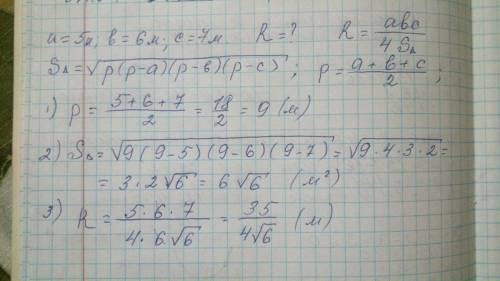 a = 5м, в = 6м; c = 7м R = ? R = abc / 4 S△
S△ = √(p(p-a)(p-в)(p-c)); p = (a+в+c) / 2;
1) p = (5+6+7) / 2 = 18 / 2 = 9 (м)
2) S△ = √(9(9-5)(9-6)(9-7)) = √(9·4·3·2) =
= 3·2√6 = 6√6 (м²)
3) R = (5·6·7) / (4·6√6) = 35 / 4√6 (м)